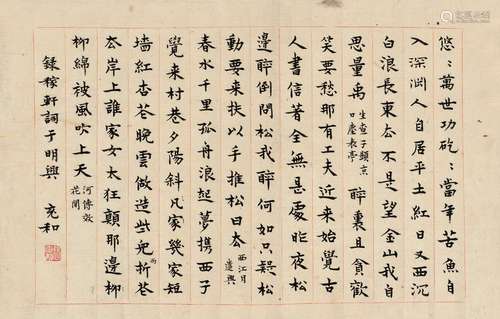 悠〻萬世功矻〻當年苦魚自
入深淵人自居平土紅日又西沉
白浪長東去不是望金山我自
思量禹 生查子題京口塵表亭 醉裏且貪歡
笑要愁那有工夫近來始覺古
人書信著全無是處昨夜松
邊醉倒問松我醉何如只疑松
動要來扶以手推松曰去 西江月遣興
春水千里孤舟浪起夢攜西子
覺來村巷夕陽斜几家幾家短
墻紅杏花晚雲做造些兒雨折花
去岸上誰家女太狂顛那邊柳
柳綿被風吹上天 河傳效花間
錄稼軒詞于明興 充和